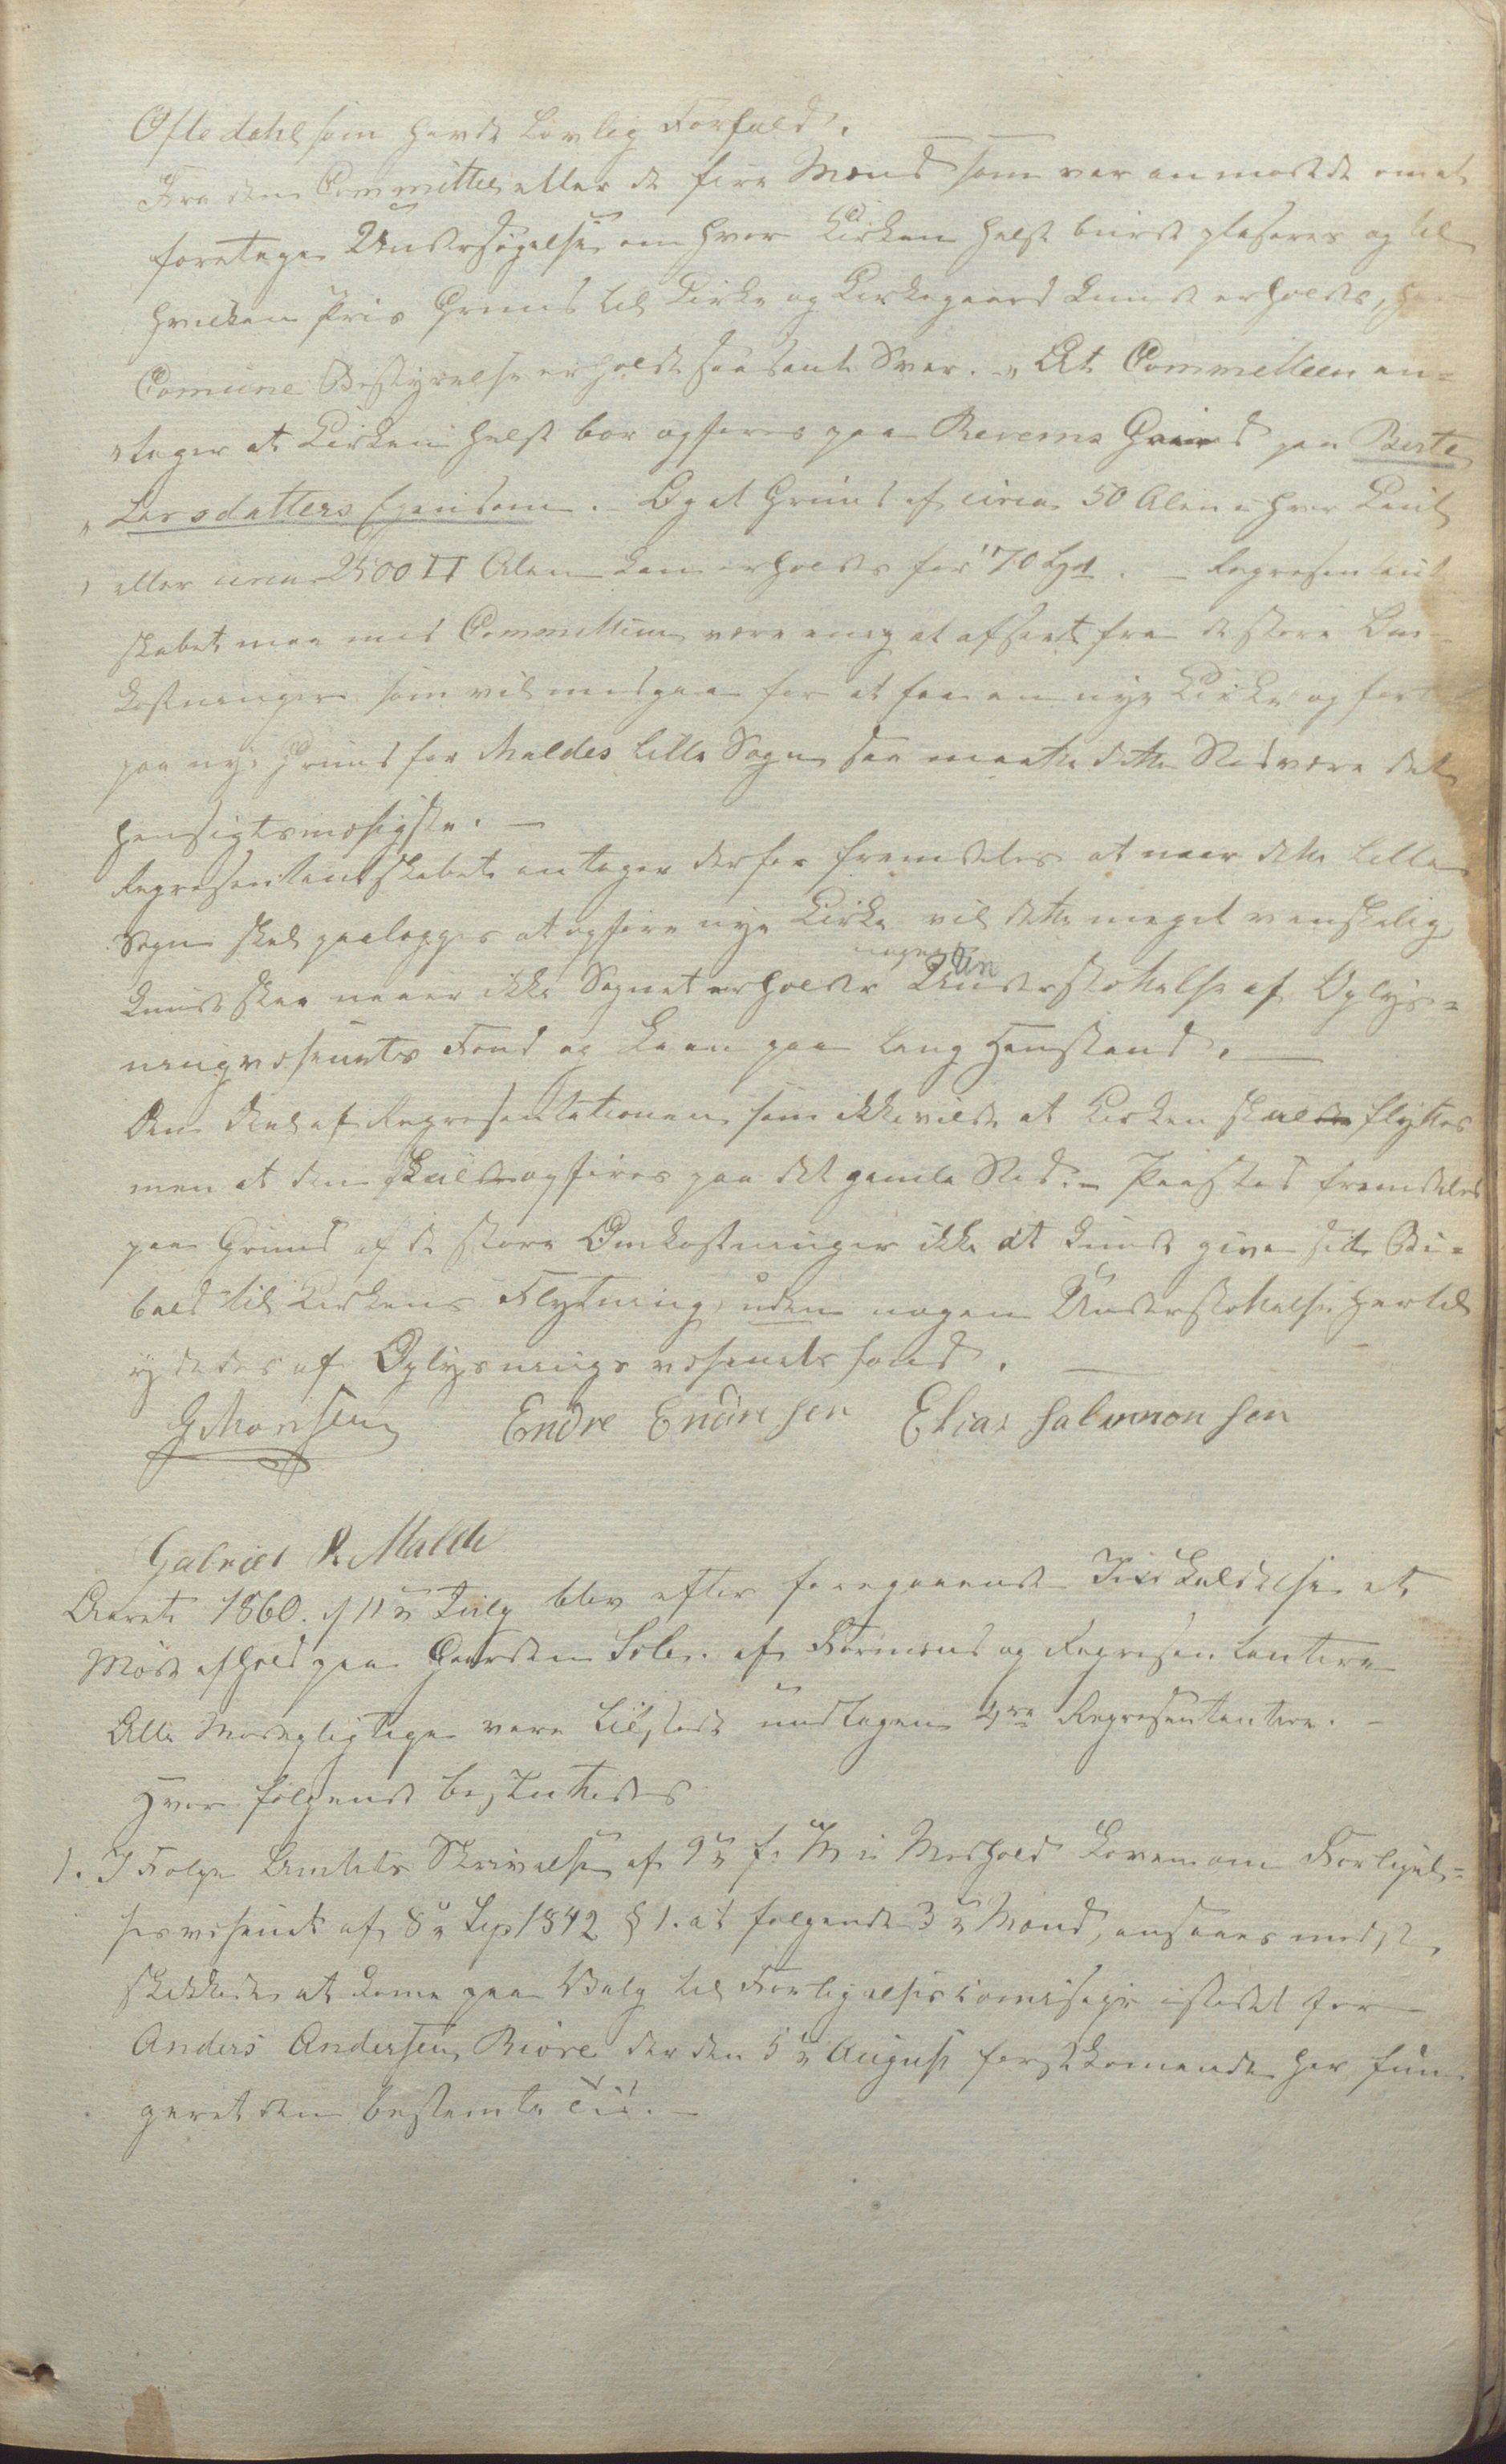 Oftedahl som havde Lovlig Forfald.
Fra den Committee eller de fire Mænd som var anmodede om at
foretage Undersøgelse om hvor Kirken helst burde plaseres og til
hvilken Pris Grund til Kirke og Kirkegaard kunde erholdes, har
Comune Bestyrelse erholdt saadant Svar. - "At Committeen an=
"tager at Kirken helst bør opføres paa Revems Grund paa Berte
"Larsdatters Eiendom. - Og at Grund af circa 50 Alen i hver Kant
" eller circa 2500 □ Alen kan erholdes for 70 Spd. - Repræsentant
skabet maa med Committeen være enig at afseet fra de store Om-
kostninger som vil medgaa for at faa en nye Kirke og
paa nye Grund for Maldes lille Sogn saa maatte dette Sted være det
hensigtsmæsigste. -
Repræsentantskabet antager derfor fremdeles at naar dette lille
Sogn skal paalægges at opføre nye Kirke vil dette meget vanskelig
kunde skee naaer ikke Sognet erholder nogen Understøttelse af Oplys=
ningvæsenets Fond og Laan paa lang Henstand. -
Den Deel af Repræsentationen som ikke vilde at Kirken skulde flyttes
men at den skulde opføres paa det gamle Sted. - Paastod fremdeles
paa Grund af de store Omkostninger ikke at kunde give sitt Bi=
fald til Kirkens Flytning, uden nogen Understøttelse hertil
ydedes af Oplysnings væsenets fond. -
G Monsen Endre Endresen Elias Salomonsen
Gabriel P. Malde
Aaret 1860. d 11te July blev efter foregaaende Tilkaldelse et
Møde afhold paa Gaarden Sole. af Formænd og Repræsentantere
Alle Mødepligtige vare tilstede undtagen 4re Repræsentantere. -
Hvor følgende besluttedes
1. I Følge Amtets Skrivelse af 9de f. M i Medhold Loven om Forligel=
sesvæsenet af 8de Sep 1842 § 1. at følgende 3de Mænd, ansees mest
skikkede at kome paa Valg til Forligelsescomisær istedet for
Anders Andersen Riøre der den 5te August førstkomende har fun
geret den bestemte Tid. -